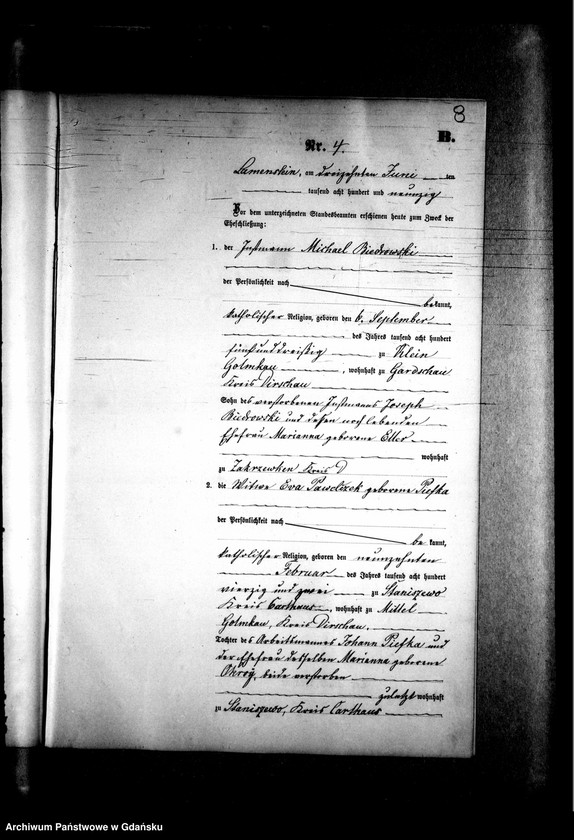 8
B.
Nr. 4.
Lamenstein, am dreizehnten Juni ten
tausend acht hundert und neunzig
Vor dem unterzeichneten Standesbeamten erschienen heute zum Zweck der
Eheschließung:
1. der Instmann Michael Biedrowski
der Persönlichkeit nach
bekannt,
katholischer Religion, geboren den 6. September
des Jahres tausend acht hundert
fünfunddreißig zu Klein
Golmkau, wohnhaft zu Gardschau
Kreis Dirschau
Sohn des verstorbenen Instmanns Joseph
Biedrowski und dessen noch lebenden
Ehefrau Marianna geborene
wohnhaft
zu Zakrzewken Kreis D
2. die Witwe Eva Pawelczek geborene Piefka
der Persönlichkeit nach
be kannt,
katholischer Religion, geboren den neunzehnten
Februar des Jahres tausend acht hundert
vierzig und zwei zu Staniszewo
Kreis Carthaus, wohnhaft zu Mittel
Golmkau, Kreis Dirschau.
Tochter des Arbeitsmannes Johann Piefka und
der Ehefrau desselben Marianna geborene
beide verstorben
zuletzt wohnhaft
zu Staniszewo, Kreis Carthaus
Archiwum Państwowe w Gdańsku